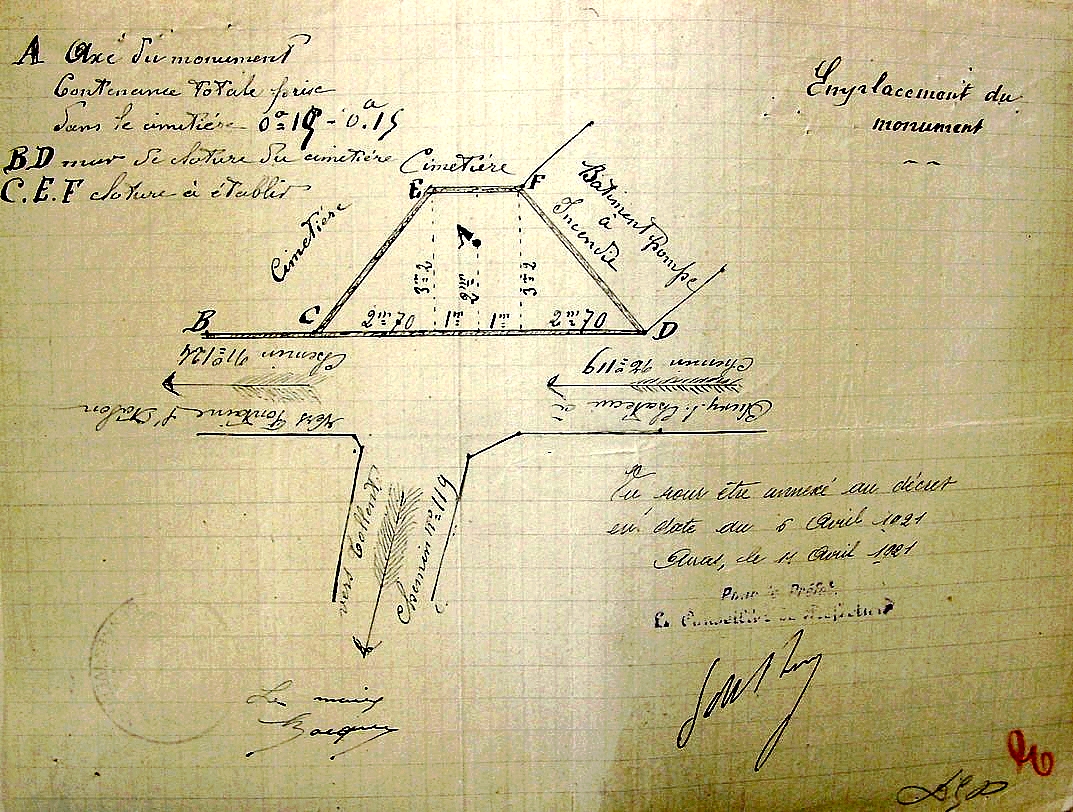 A Axe du monument
Contenance totale prise
dans le cimetière 0ª15 - 0.ª15
BD mur de cloture du cimetière
C.E.F cloture à établir
Emplacement du
monument
Cimetière
E F
Cimetière
Bâtiment Pompe
à
Incendie
A
3m=2
3m=2
B C D
2m=70 1m 1m 2m=70
Chemin nº 124
Chemin nº 119
Vers Fontaine l'Etalon
vers
Chemin nº 119
Vu pour être annexé au décret
en date du 6 Avril 1921
Arras, le 11 Avril 1921
Pour le Préfet
Le Conseiller de Préfecture
Le maire